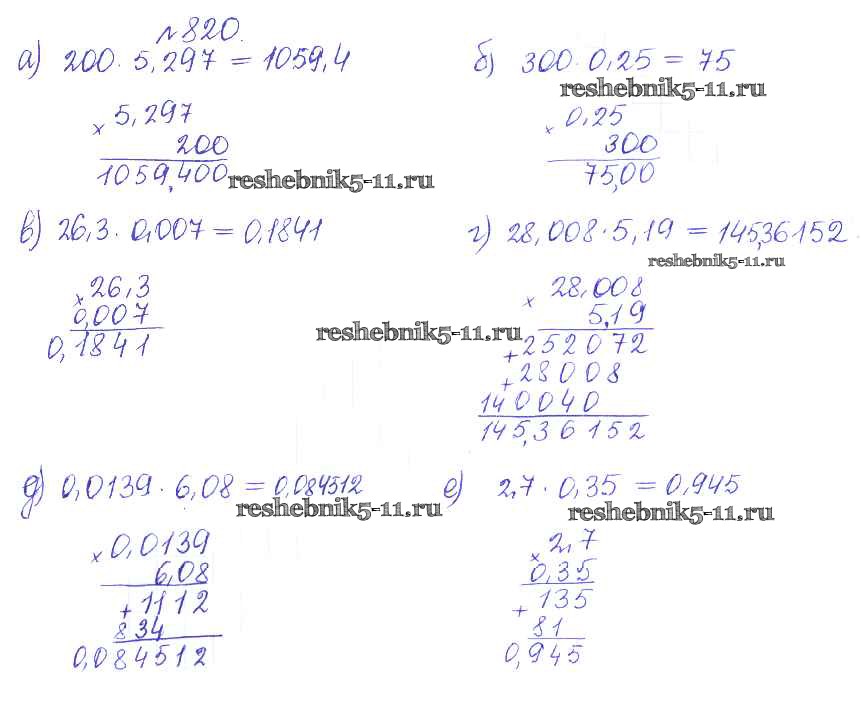 №820.
а) 200 · 5,297 = 1059,4
б) 300 · 0,25 = 75
reshebnik5-11.ru
× 5,297
200
1059,400
reshebnik5-11.ru
× 0,25
300
75,00
в) 26,3 · 0,007 = 0,1841
г) 28,008 · 5,19 = 145,36152
reshebnik5-11.ru
× 26,3
0,007
0,1841
reshebnik5-11.ru
× 28,008
5,19
+ 252072
+ 28008
140040
145,36152
д) 0,0139 · 6,08 = 0,084512
reshebnik5-11.ru
е) 2,7 · 0,35 = 0,945
reshebnik5-11.ru
× 0,0139
6,08
+ 1112
834
0,084512
× 2,7
0,35
+ 135
81
0,945